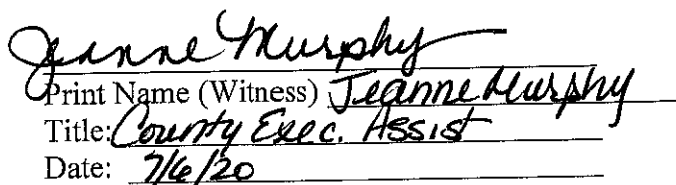 Jeanne Murphy
Print Name (Witness) Jeanne Murphy
Title: County Exec. Assist
Date: 7/6/20